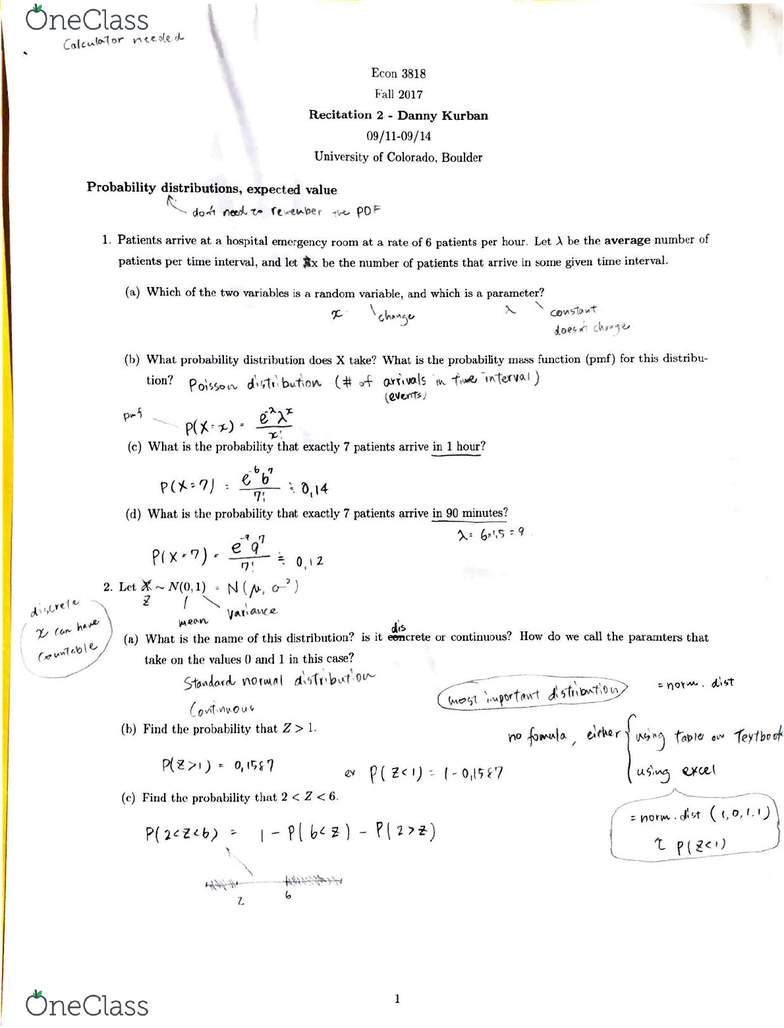 OneClass
Calculator needed
Econ 3818
Fall 2017
Recitation 2 - Danny Kurban
09/11-09/14
University of Colorado, Boulder
Probability distributions, expected value
don't need to remember the PDF
1. Patients arrive at a hospital emergency room at a rate of 6 patients per hour. Let λ be the average number of
patients per time interval, and let x be the number of patients that arrive in some given time interval.
(a) Which of the two variables is a random variable, and which is a parameter?
x change λ constant
doesn't change
(b) What probability distribution does X take? What is the probability mass function (pmf) for this distribu-
tion? Poisson distribution (# of arrivals in time interval)
(events)
pmf
P(X=x) = e^-λ λ^x / x!
(c) What is the probability that exactly 7 patients arrive in 1 hour?
P(X=7) = e^-6 6^7 / 7! ≒ 0,14
(d) What is the probability that exactly 7 patients arrive in 90 minutes?
λ = 6×1,5 = 9
P(X=7) = e^-9 9^7 / 7! ≒ 0,12
2. Let X ~ N(0,1) = N(μ, σ²)
Z
mean variance
discrete
x can have
countable
(a) What is the name of this distribution? is it concrete or continuous? How do we call the paramters that
dis
take on the values 0 and 1 in this case?
Standard normal distribution
Continuous
most important distribution
= norm. dist
(b) Find the probability that Z > 1.
no fomula, either using table on Textbook
using excel
P(Z>1) = 0,1587
ex P(Z<1) = 1-0,1587
(c) Find the probability that 2 < Z < 6.
= norm.dist (1,0,1,1)
P(Z<1)
P(2<Z<6) = 1 - P(6<Z) - P(2>Z)
2 6
1
OneClass